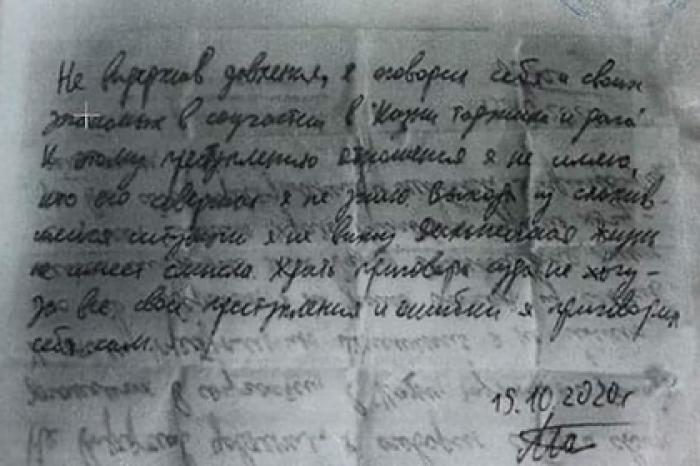 Не выдержав давления, я оговорил себя и своих
знакомых в соучастии в "Казни таджика и дага"
К этому преступлению отношения я не имею,
кто его совершил я не знаю Выхода из сложив-
шейся ситуации я не вижу Дальнейшая жизнь
не имеет смысла. Ждать приговора суда не хочу -
за все свои преступления и ошибки я приговорил
себя сам.
15.10.2020г